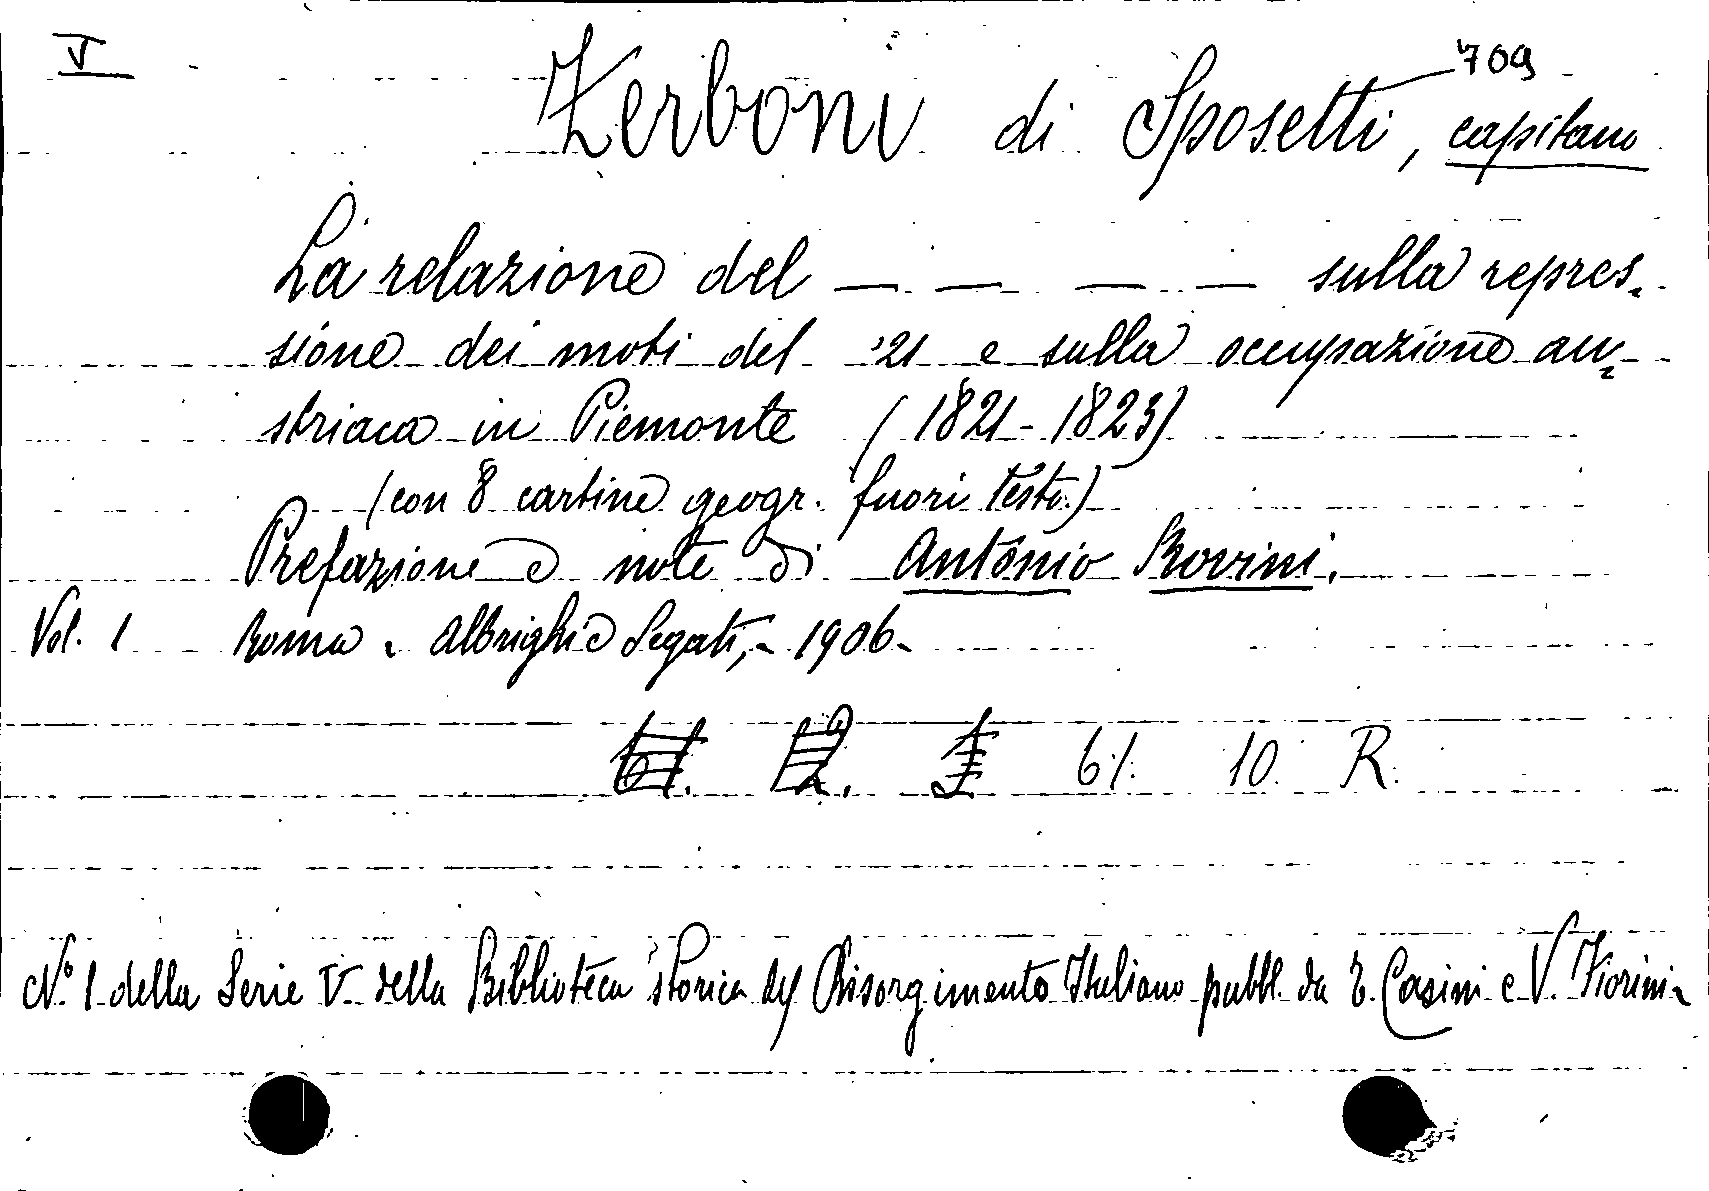 V
709
Zerboni di Sposetti, capitano
La relazione del — — — — sulla repres-
sione dei moti del '21 e sulla occupazione au-
striaca in Piemonte (1821-1823)
(con 8 cartine geogr. fuori testo)
Prefazione e note di Antonio Rovini.
Vol. 1 Roma - Albrighi e Segati, - 1906-
61. 10. R.
N.° 1 della Serie V della Biblioteca storica del Risorgimento Italiano pubbl. da T. Casini e V. Fiorini-